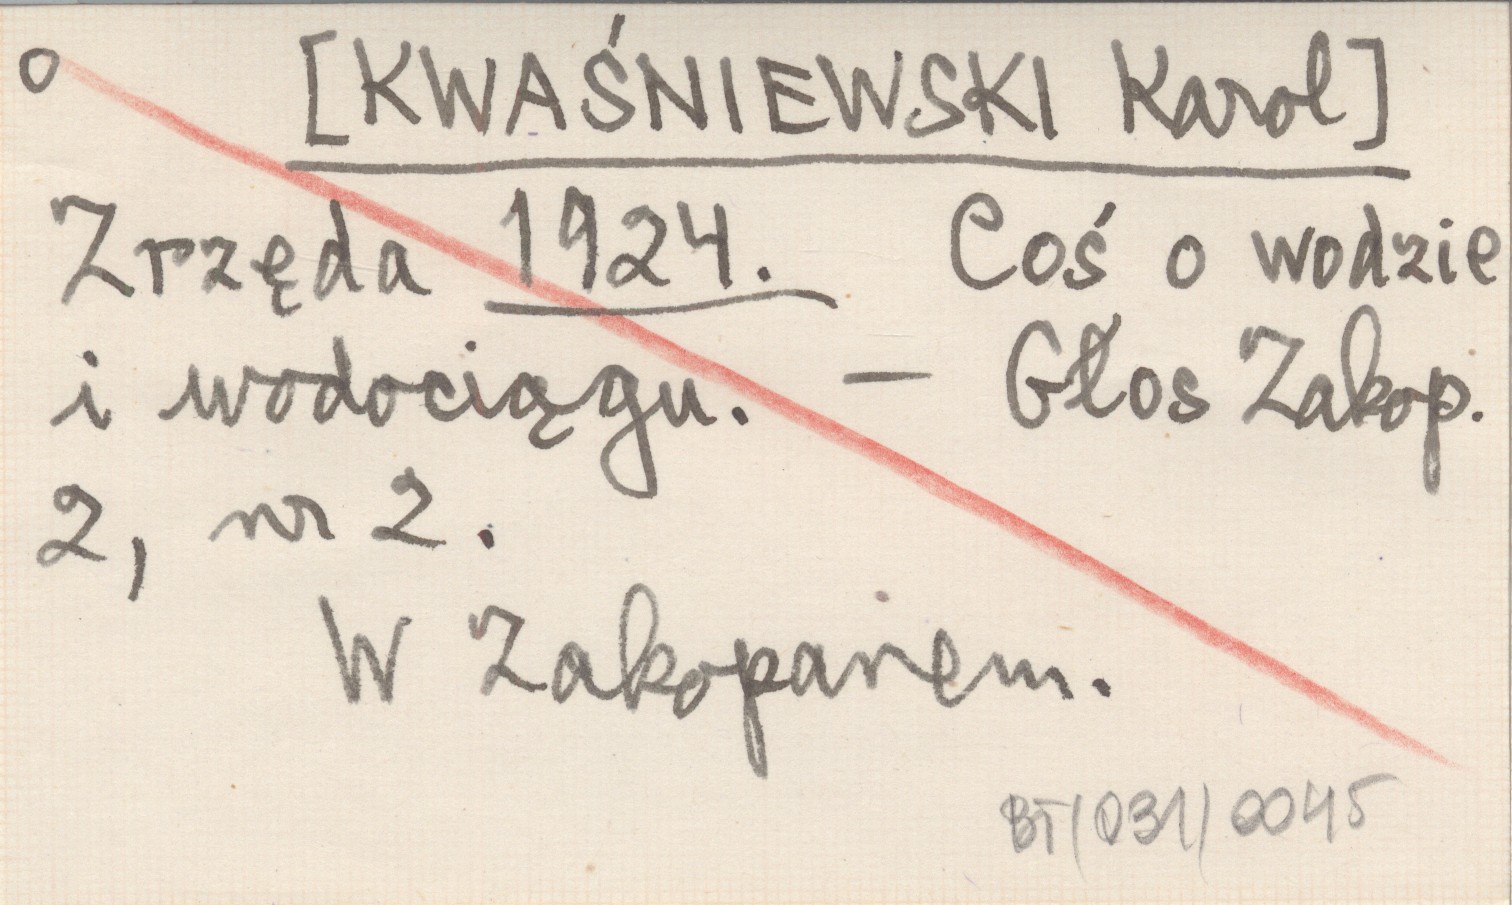 o [KWAŚNIEWSKI Karol]
Zrzęda 1924. Coś o wodzie
i wodociągu. — Głos Zakop.
2, nr 2.
W Zakopanem.
BT(031)0045